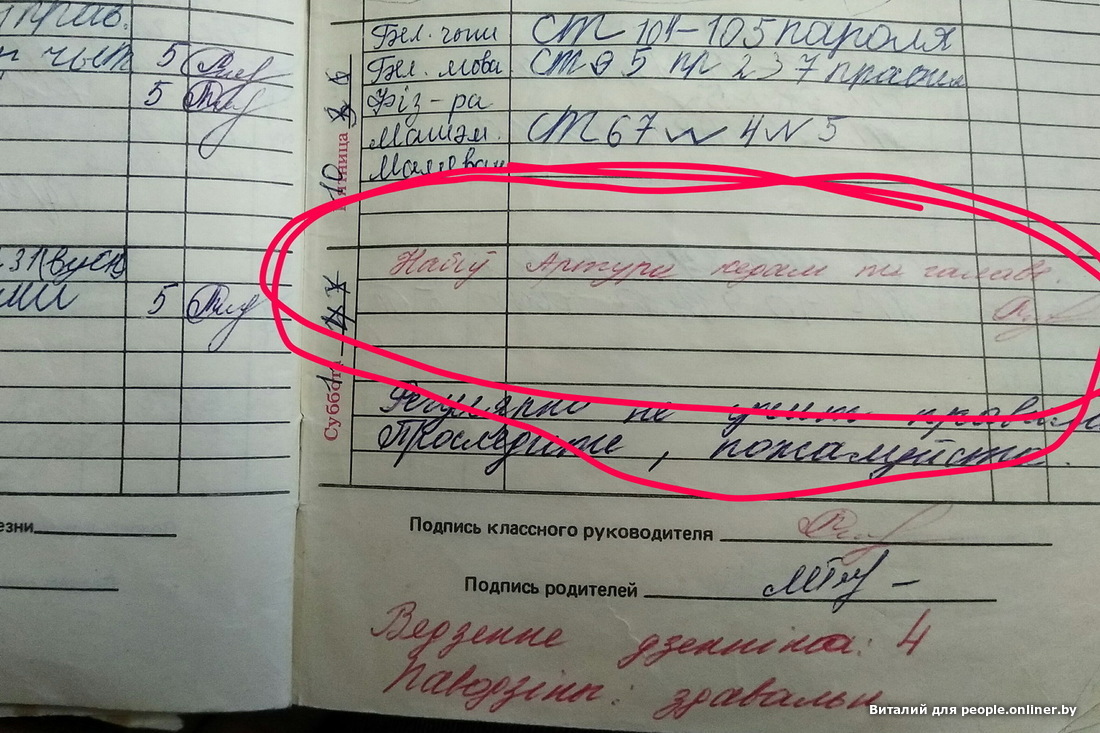 чыт 5
5
5
Бел. чыт ст 104-105 пароля
Бел. мова ст 95 пр 237 правіл
Фіз-ра
Матэм. ст 67 № 4 № 5
Маляван
Пятница 10
Набіў Артура кедам па галаве.
Суббота 11
Регулярно не учит правила
Проследите, пожалуйста.
езни
Подпись классного руководителя
Подпись родителей
Вядзенне дзённіка: 4
Паводзіны: здавальн
Виталий для people.onliner.by